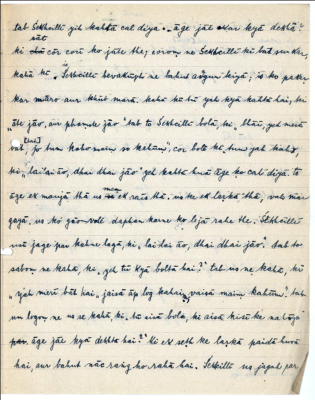 tab Sekhcillī yih kahtā cal diyā. āge jāt kar kyā dekhā?
ki sāt cor corī ko jāte the, corom ne Sekhcillī kī bāt sunkar,
kahā ki is Sekhcillī bevakūph ne bahut asgun kiyā, is ko pakar
kar māro aur khūb mārā. kahā ki tū yah kyā kahtā hai, ki
"āte jāo, aur phamste jāo" tab to Sekhcillī bolā, ki "bhāī, yah merī
bāt jo tum kaho maim so kahūm, cor bole ki tum yah kaho,
ki "lai lai āo, dhai dhai jāo" yah kahtā huā āge ko cal diyā. to
āge ek maujā thā us mem ek rāis thā, us ke ek larkā thā, vah mar
gayā, us ko gāo vāle daphan karne ko le jā rahe the. Sekhcillī
usī jage par kahne lagā, ki lai lai āo, dhai dhai jāo. tab to
sabom ne kahā, ki "yah tū kyā boltā hai?" tab us ne kahā, ki
"yah merī bāt hai, jaisā āp log kahai, vaisā maim kahūm." tab
un logom ne us se kahā, ki, tū aisā bolā, ki aisā kisī ke na hojā
āge jāke kyā dekhtā hai? ki ek seth ke larkā paidā huā
hai, aur bahut nāc rang ho rahā hai. Sekhcillī us jagah par